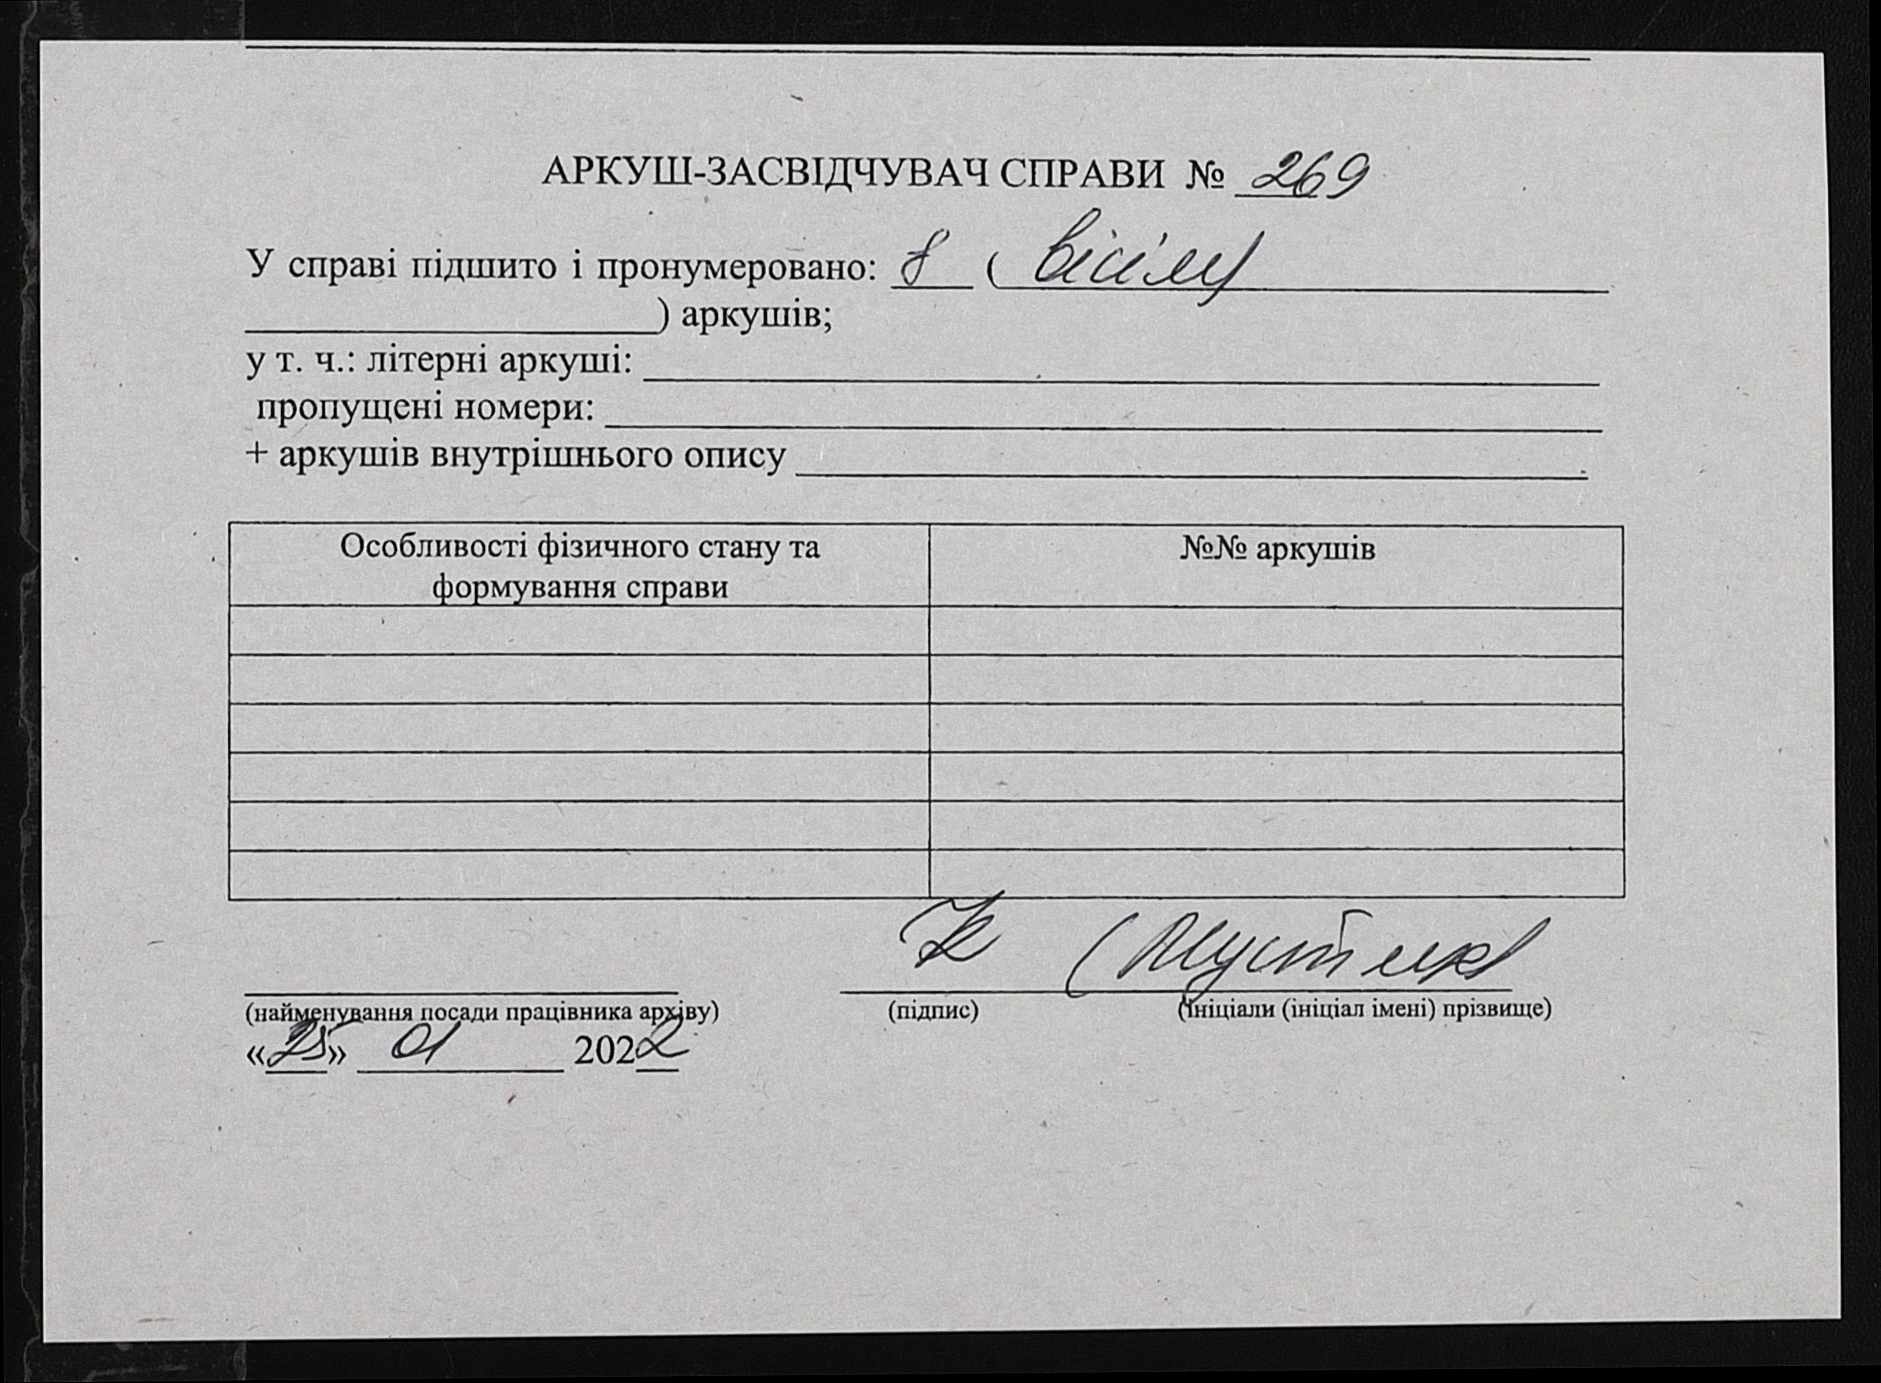 АРКУШ-ЗАСВІДЧУВАЧ СПРАВИ № 269
У справі підшито і пронумеровано: 8 (вісім)
) аркушів;
у т. ч.: літерні аркуші:
пропущені номери:
+ аркушів внутрішнього опису
Особливості фізичного стану та
формування справи
№№ аркушів
(найменування посади працівника архіву)
(підпис)
(ініціали (ініціал імені) прізвище)
«25» 01 2022